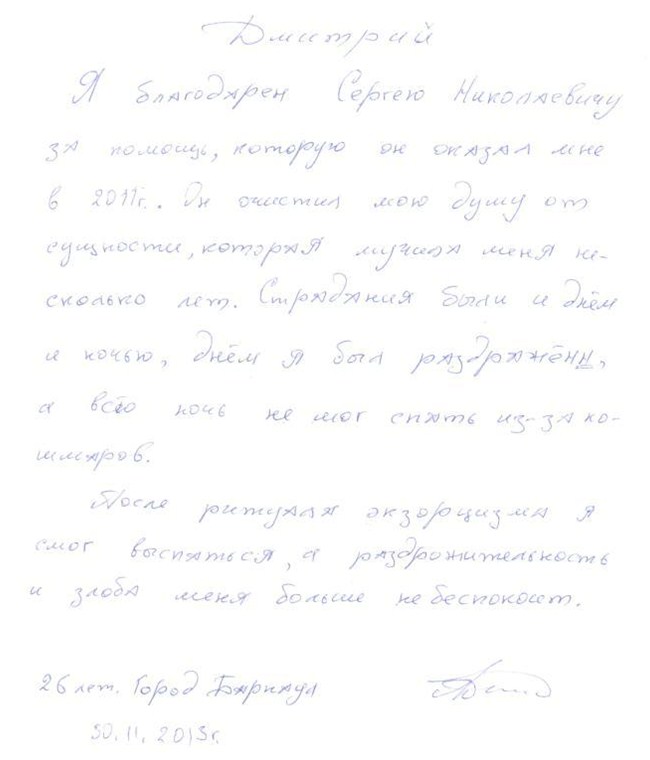 Дмитрий
Я благодарен Сергею Николаевичу
за помощь, которую он оказал мне
в 2011г.. Он очистил мою душу от
сущности, которая мучила меня не-
сколько лет. Страдания были и днём
и ночью, днём я был раздражённ,
а всю ночь не мог спать из-за ко-
шмаров.
После ритуала экзорцизма я
смог выспаться, а раздрожительность
и злоба меня больше не беспокоит.
26 лет. Город Барнаул
30.11.2013г.